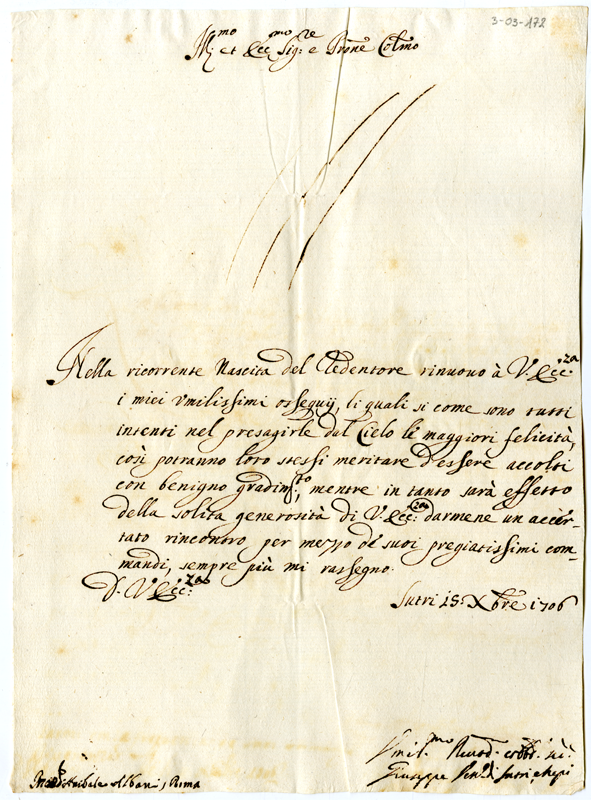 3-03-172
Ill.mo et Ecc.mo Sig.re e Prone Colmo
Nella ricorrente Nascita del Redentore rinuovo à V. Ecc.za
i miei vmilissimi ossequij, li quali si come sono tutti
intenti nel presagirle dal Cielo le maggiori felicità,
così potranno loro stessi meritare d'essere accolti
con benigno gradim.to, mentre in tanto sarà effetto
della solita generosità di V. Ecc.za darmene un accer-
tato rincontro per mezzo de suoi pregiatissimi com-
mandi, sempre più mi rassegno.
D. V. Ecc.za
Sutri 15: Xbre 1706
Vmil.mo
Giuseppe di Sutri, e Nepi
Annibale Albani, Roma